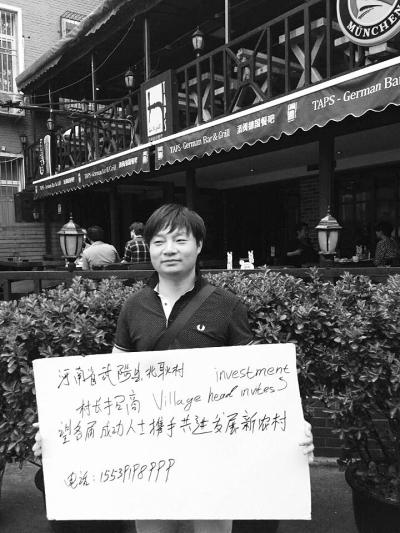 MÜNCHEN
TAPS - German Bar & Grill
TAPS - German Bar & Grill
TAPS - German Ba
河南省武陽县北耿村 investment
村长手招商 Village head invites
望各届成功人士携手共进发展新农村
电话:15539198999